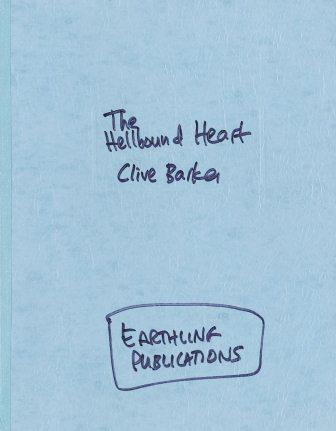 The
Hellbound Heart
Clive Barker
EARTHLING
PUBLICATIONS